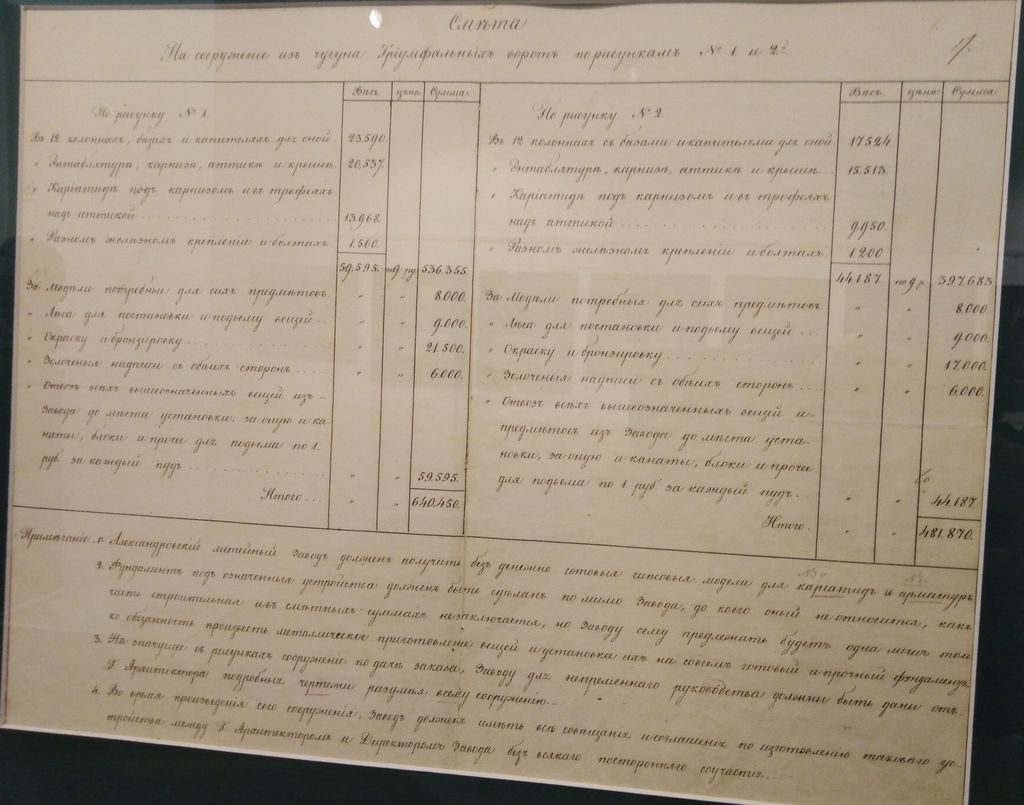 Смѣта
На сооруженіе изъ чугуна Тріумфальныхъ воротъ по рисункамъ № 1. и 2.
17.
Вѣсъ. цѣна. Сумма.
По рисунку № 1.
Въ 12 колоннахъ, базахъ и капителяхъ для оной 23,590.
" Энтаблатурѣ, карнизѣ, аттикѣ и крышѣ 20,537.
" Каріатидѣ подъ карнизомъ и въ трофеяхъ
надъ аттикой 13,968.
" Разномъ желѣзномъ крѣпленіи и болтахъ 1,500.
59,595. по 9 ру. 536.355.
За Модели потребные для сихъ предмѣтовъ " " 8.000.
" Лѣса для постановки и подъему вещей " " 9.000.
" Окраску и бронзировку " " 21.500.
" Золоченыя надписи съ обѣихъ сторонъ " " 6.000.
" Отвозъ всѣхъ вышеозначенныхъ вещей изъ
Завода до мѣста установки, за оную и ка-
наты, блоки и прочее для подъема по 1.
руб. за каждый пудъ " " 59.595.
Итого " " 640.450.
Вѣсъ. цѣна. Сумма.
По рисунку № 2.
Въ 12 колоннахъ съ базами и капителями для оной 17524.
" Энтаблятурѣ, карнизѣ, аттикѣ и крышѣ 15.513.
" Каріатидѣ подъ карнизомъ и въ трофеяхъ
надъ аттикой 9.950.
" Разномъ желѣзномъ крѣпленіи и болтахъ 1200.
44187 по 9 р. 397.683.
За Модели потребныя для сихъ предмѣтовъ " " 8.000.
" Лѣса для постановки и подъему вещей " " 9.000.
" Окраску и бронзировку " " 17.000.
" Золоченыя надписи съ обѣихъ сторонъ " " 6.000.
" Отвозъ всѣхъ вышеозначенныхъ вещей и
предмѣтовъ изъ Завода до мѣста уста-
новки, за оную и канаты, блоки и прочее
для подъема по 1. руб. за каждый пудъ " " 44.187.
Итого " " 481.870.
Примѣчаніе 1. Александровскій литейный Заводъ долженъ получить безъ денежно готовыя гипсовыя модели для каріатидъ и арматуръ
2. Фундаментъ подъ означенныя устройства долженъ быть сдѣланъ по мимо Завода, до коего оный не относится, какъ
часть строительная и въ смѣтныхъ суммахъ незаключается, но Заводу сему предлежать будетъ одна лишь толь
ко обязанность произвесть металлическое приготовленіе вещей и установка ихъ на совсемъ готовый и прочный фундаментъ
3. На значущіе въ рисункахъ сооруженіе по дачѣ заказа, Заводу для непременнаго руководства должны быть даны отъ
Г. Архитектора подробные чертежи разумѣя всему сооруженію.
4. Во время произведенія сего сооруженія, Заводъ долженъ имѣть всѣ совѣщанія и соглашенія по изготовленію таковаго ус-
тройства между Г. Архитекторомъ и Директоромъ Завода безъ всякаго посторонняго соучастія.